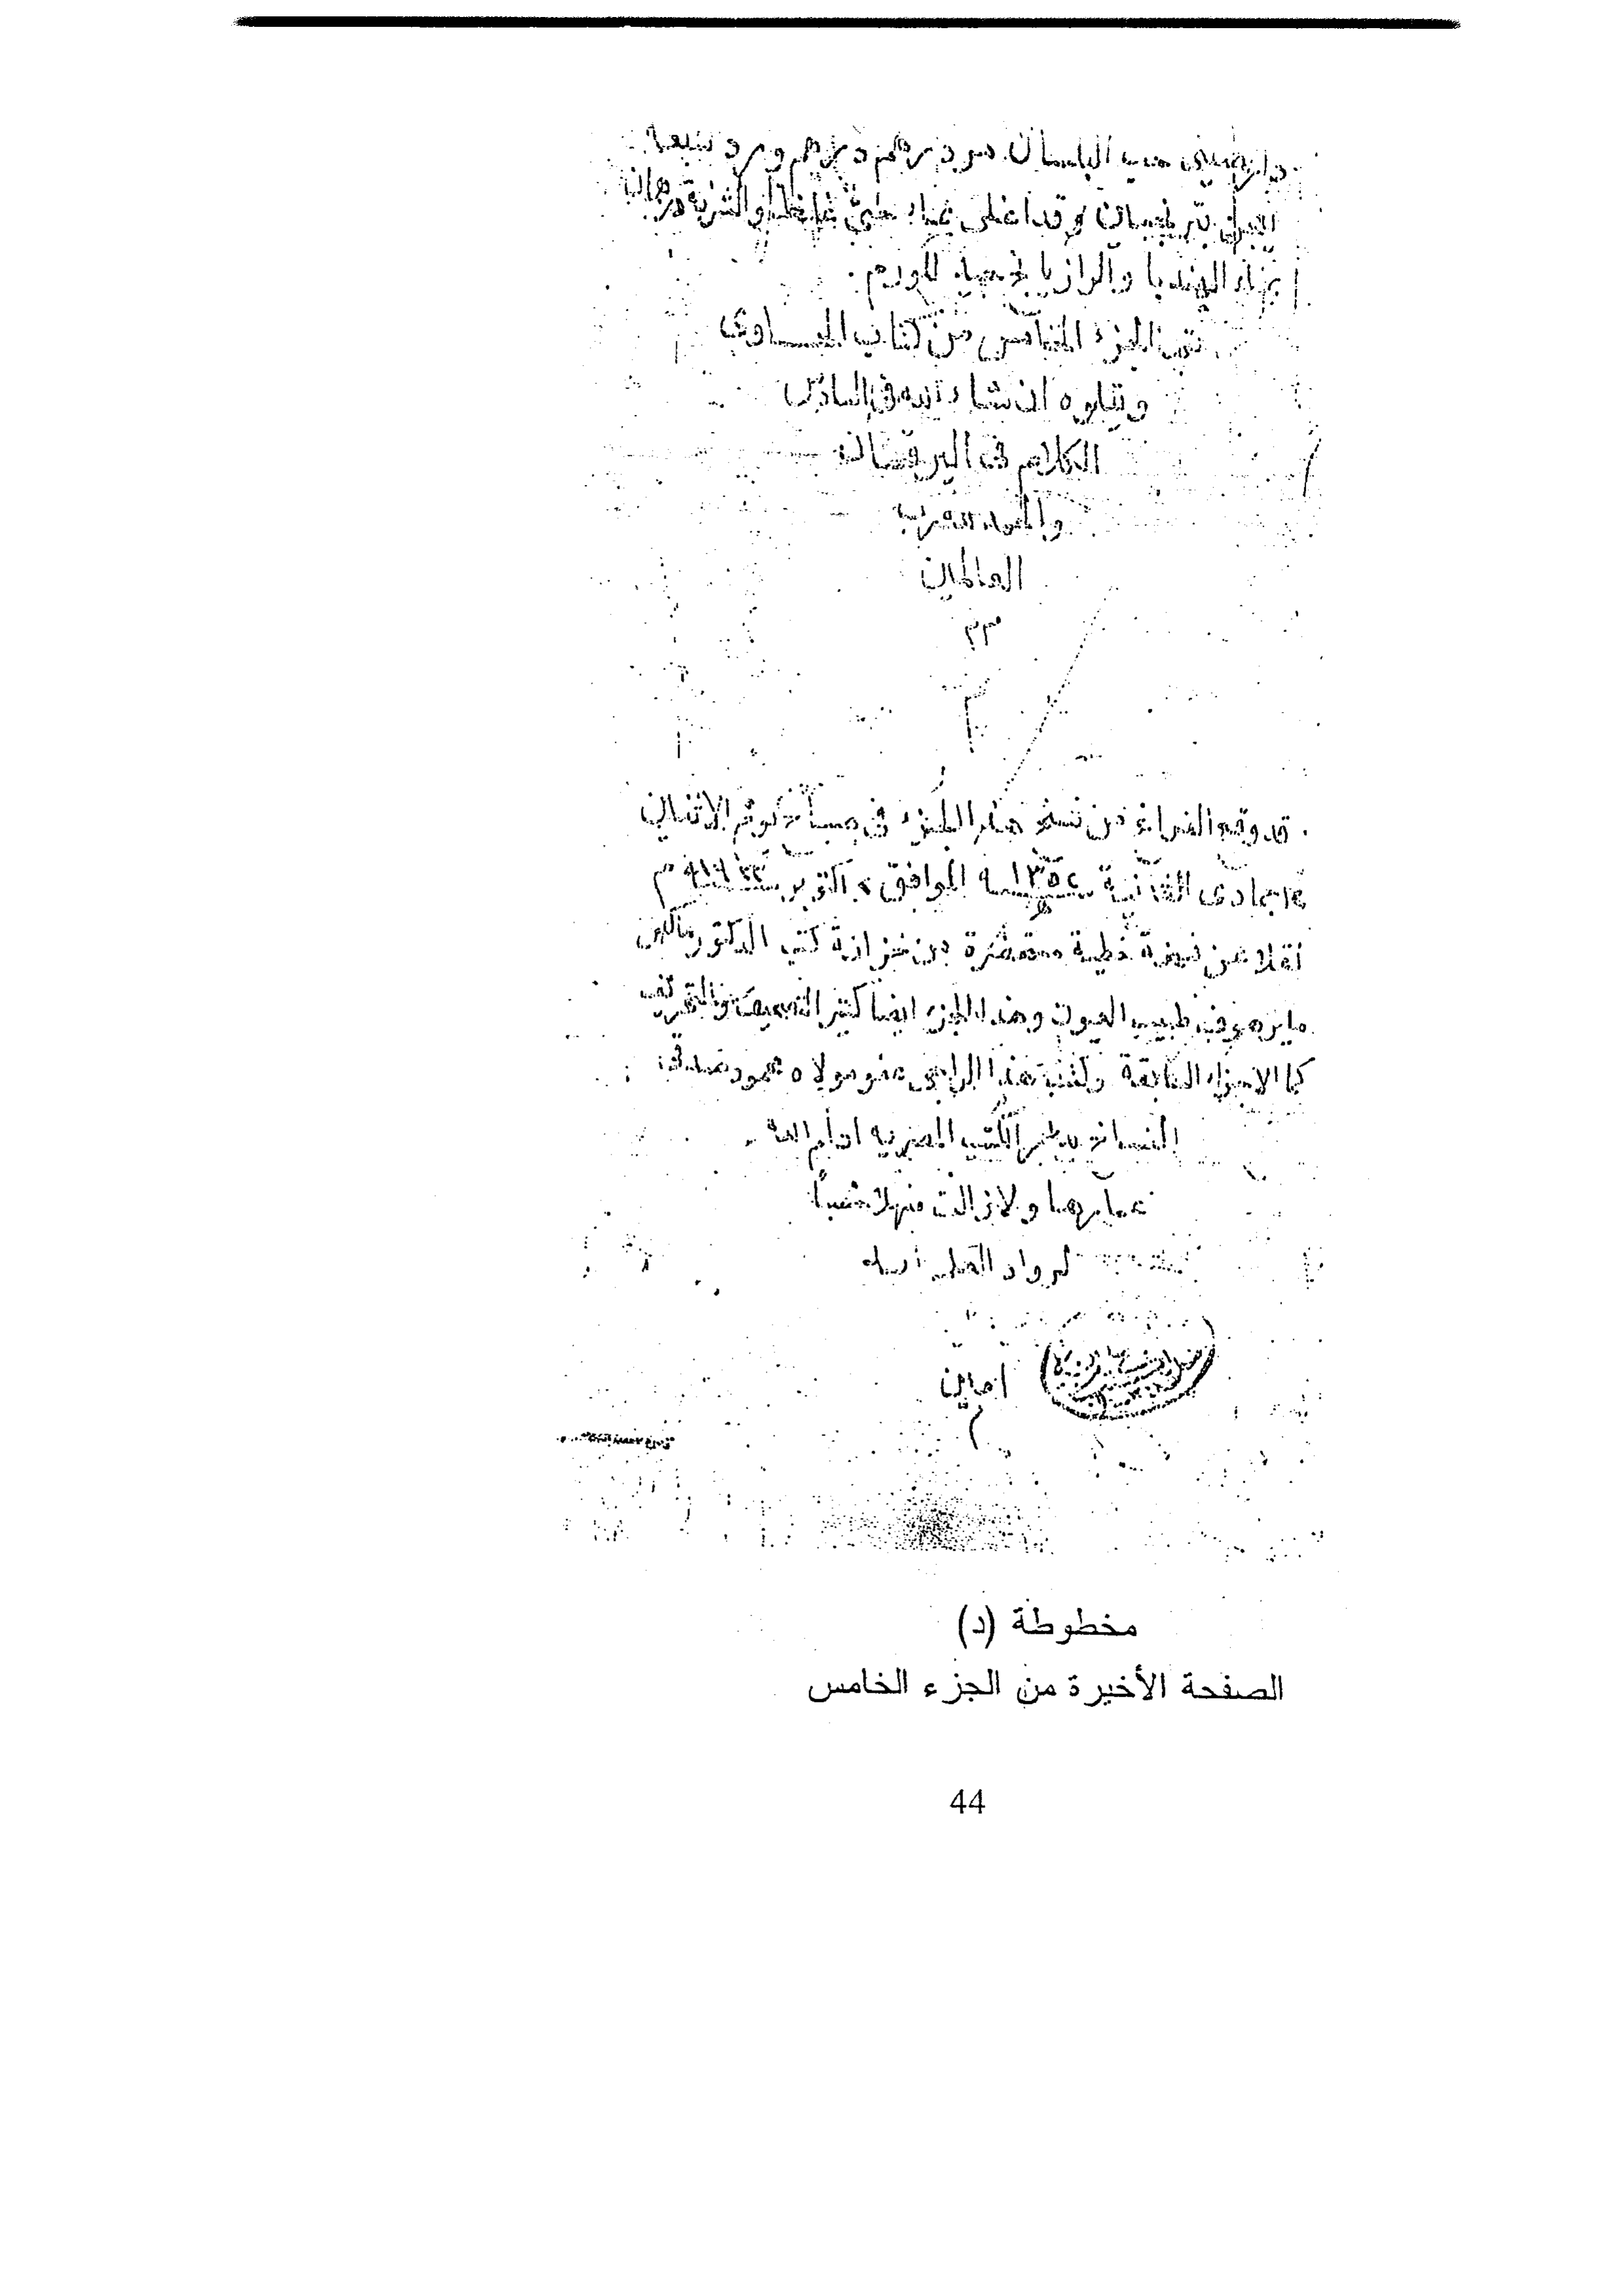 دارصيني حب البلسان من درهم درهم ورد سبعة
بترنجبين وقد اغلى بماء والشربة درهمان
بماء الهندبا والرازيانج جيد للورم.
تم الجزء الخامس من كتاب الحاوى
ويتلوه ان شاء الله فى السادس
الكلام فى اليرقان
والحمد لله رب
العالمين
قد وقع الفراغ من نسخ هذا الجزء فى مساء يوم الاثنين
جمادى الثانية سنة ١٣٥٢ الموافق اكتوبر سنة ١٩٣٣ م
نقلا عن نسخة خطية من خزانة كتب الدكتور ماكس
مايرهوف طبيب العيون وهذا الجزء ايضا كثير التصحيف والتحريف
كما الاجزاء السابقة وكتبه هذا الراجى عفو مولاه محمود صدقى
النساخ بدار الكتب المصرية ادام الله
عمارها ولا زالت منهلا عذبا
لرواد العلم
امين
مخطوطة (د)
الصفحة الأخيرة من الجزء الخامس
44